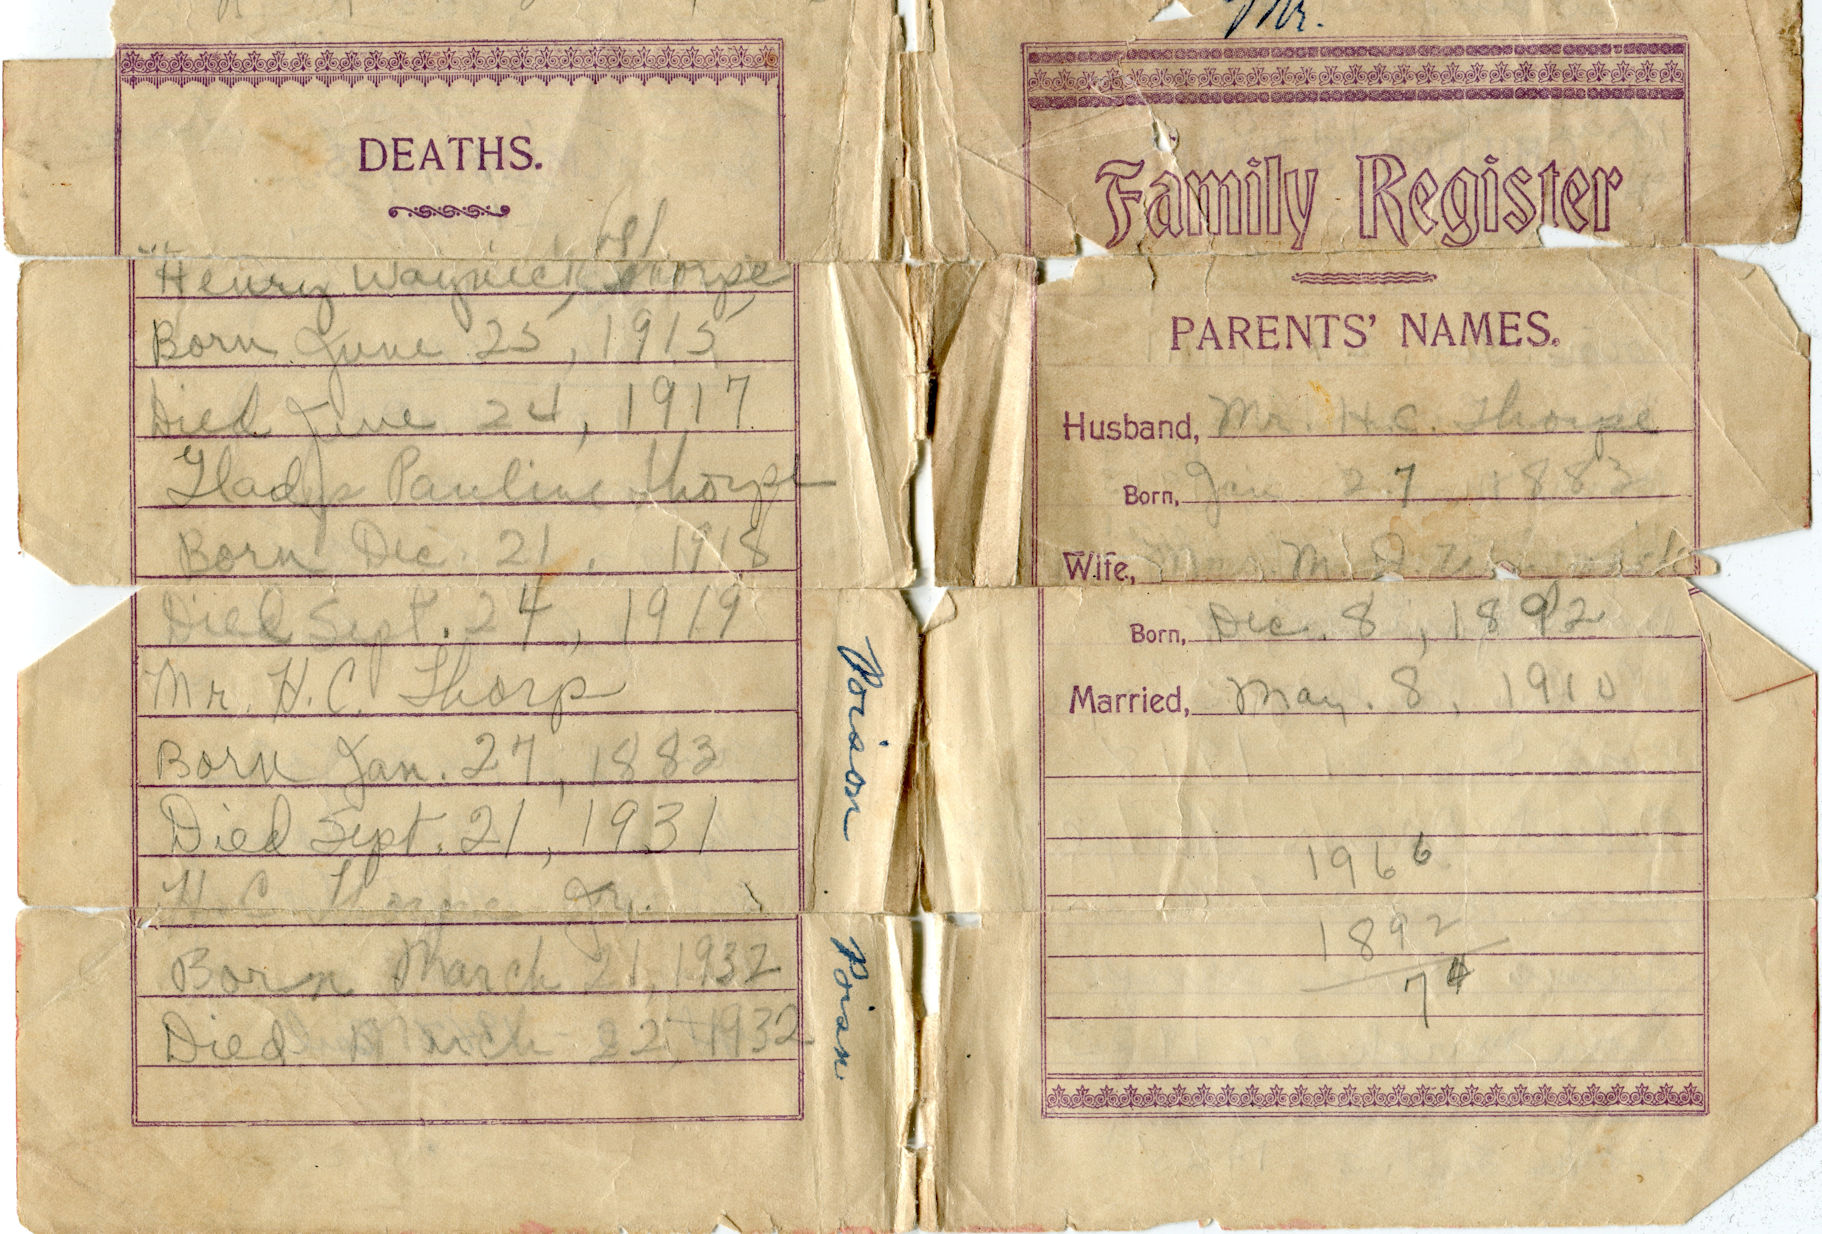 DEATHS.
Henry Waynick Thorpe
Born June 25, 1915
Died June 24, 1917
Gladys Pauline Thorpe
Born Dec. 21, 1918
Died Sept. 24, 1919
Mr. H.C. Thorp
Born Jan. 27, 1883
Died Sept. 21, 1931
H. C. Thorpe Jr.
Born March 21, 1932
Died March 22, 1932
Poison
Poison
Mr.
Family Register
PARENTS' NAMES.
Husband, Mr. H.C. Thorpe
Born, Jan 27 1883
Wife, Mrs M. J.
Born, Dec. 8, 1892
Married, May. 8, 1910
1966
1892
74